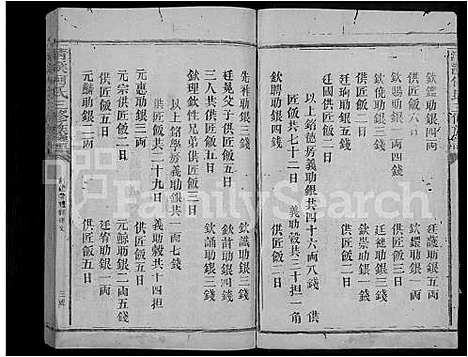 欽鑑助銀四兩
供匠飯六日
助銀一兩四錢
欽俊助銀三錢
廷珣助銀三錢
供匠飯二日
欽聘助銀三錢
廷議助銀三錢
欽鑁助銀一兩
供匠飯二日
欽崇助銀一兩
供匠飯二日
以上銘德房義助銀共四十六兩八錢
供匠飯共七十二日 義助穀共二十担一角
先祚助銀三錢
廷晃父子供匠飯二日
三人共供匠飯三日
欽理欽性兄弟供匠飯三日
欽識助銀三錢
欽訚助銀三錢
欽誦助銀三錢
以上銘學房義助銀共一兩七錢
供匠飯共二十九日 義助穀共十四担
元惠助銀三錢
供匠飯一日
元麟助銀二兩
供匠飯五日
元鯨助銀二兩五錢
供匠飯五日
廷宥助銀一兩
供匠飯五日
FamilySearch